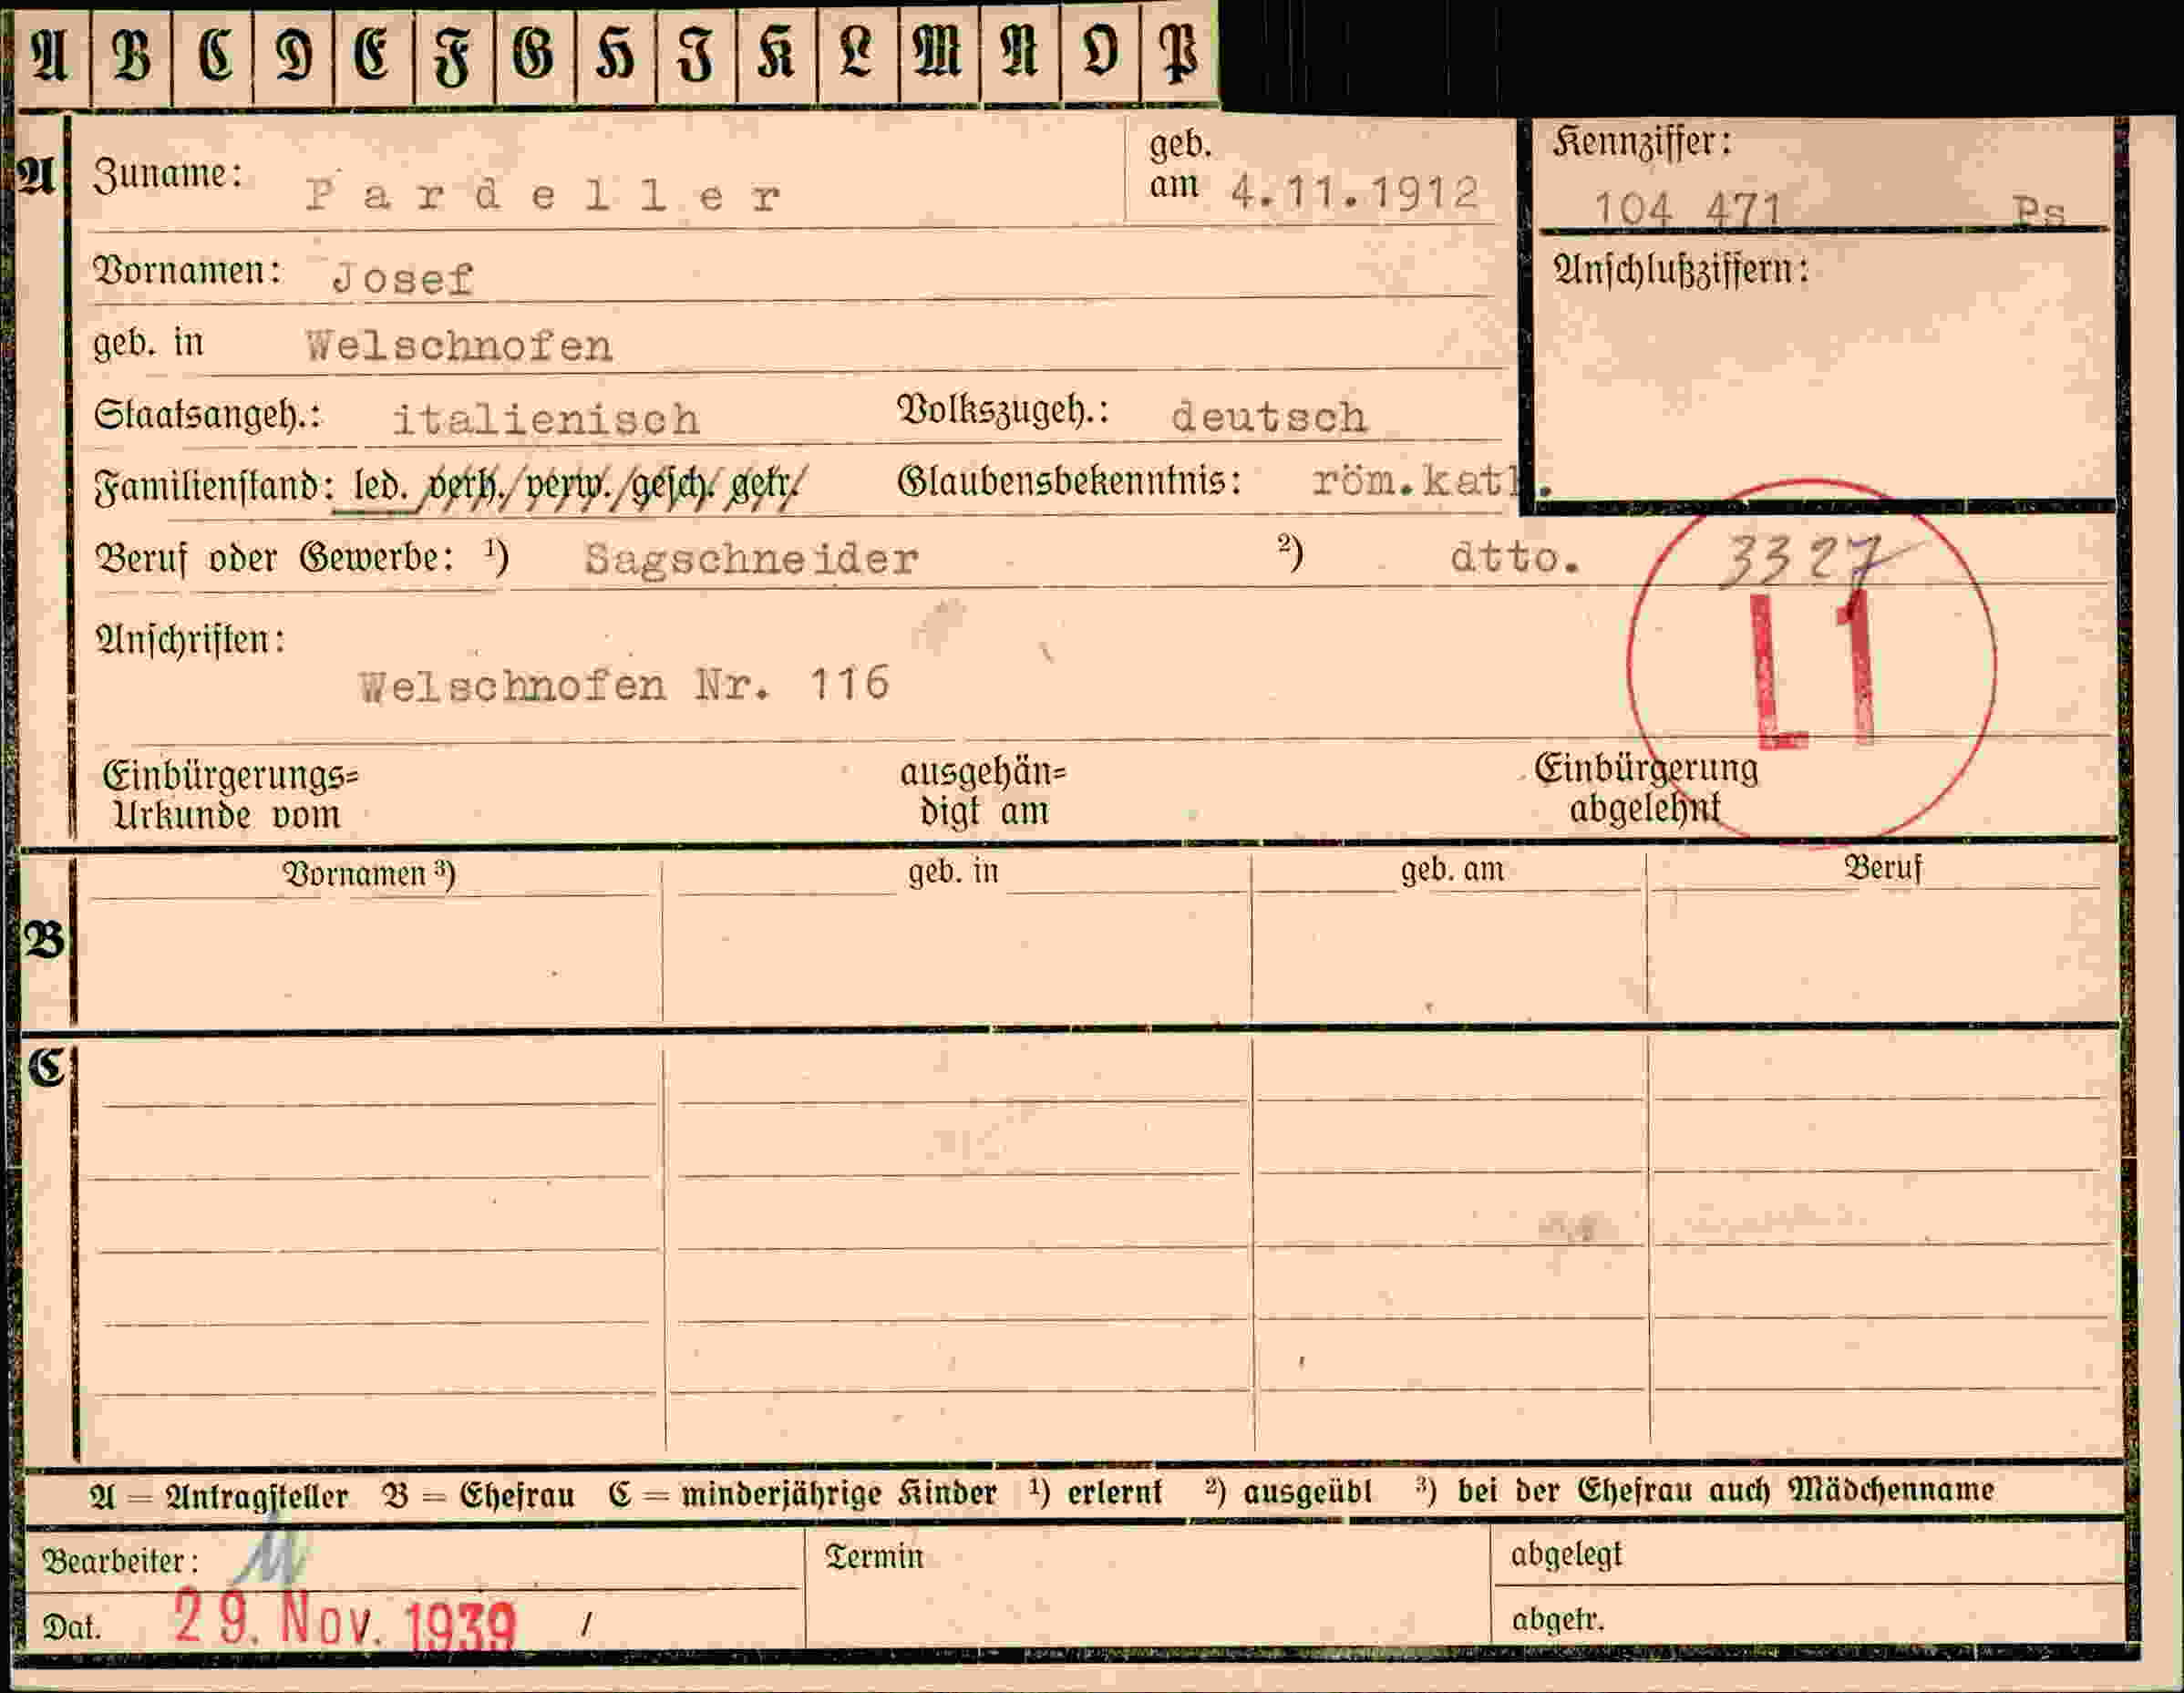 A B C D E F G H J K L M N O P
A
Zuname: Pardeller
geb. am 4.11.1912
Kennziffer:
104 471 Ps
Vornamen: Josef
Anschlußziffern:
geb. in Welschnofen
Staatsangeh.: italienisch Volkszugeh.: deutsch
Familienstand: led. verh./verw./gesch./getr. Glaubensbekenntnis: röm.kath.
Beruf oder Gewerbe: ¹) Sagschneider ²) dtto.
3327
L1
Anschriften:
Welschnofen Nr. 116
Einbürgerungs= ausgehän= Einbürgerung
Urkunde vom digt am abgelehnt
Vornamen ³) geb. in geb. am Beruf
B
C
A = Antragsteller B = Ehefrau C = minderjährige Kinder ¹) erlernt ²) ausgeübt ³) bei der Ehefrau auch Mädchenname
Bearbeiter: Termin abgelegt
Dat. 29. Nov. 1939 / abgetr.